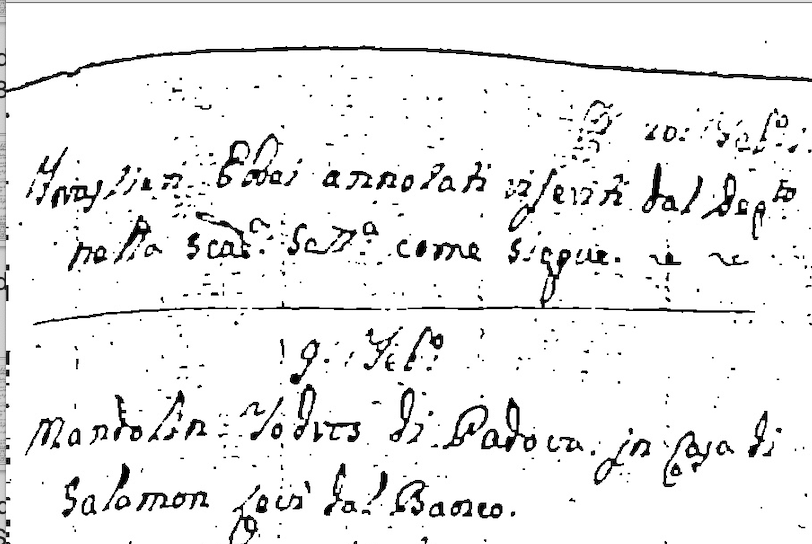 20: Feb.o
Forastieri Ebrei annolati riferiti dal Dep.to
nella scad.a Sett.a come siegue.
9: Feb.o
Mandolin Todros di Padova. in Casa di
Salamon Levi dal Banco.